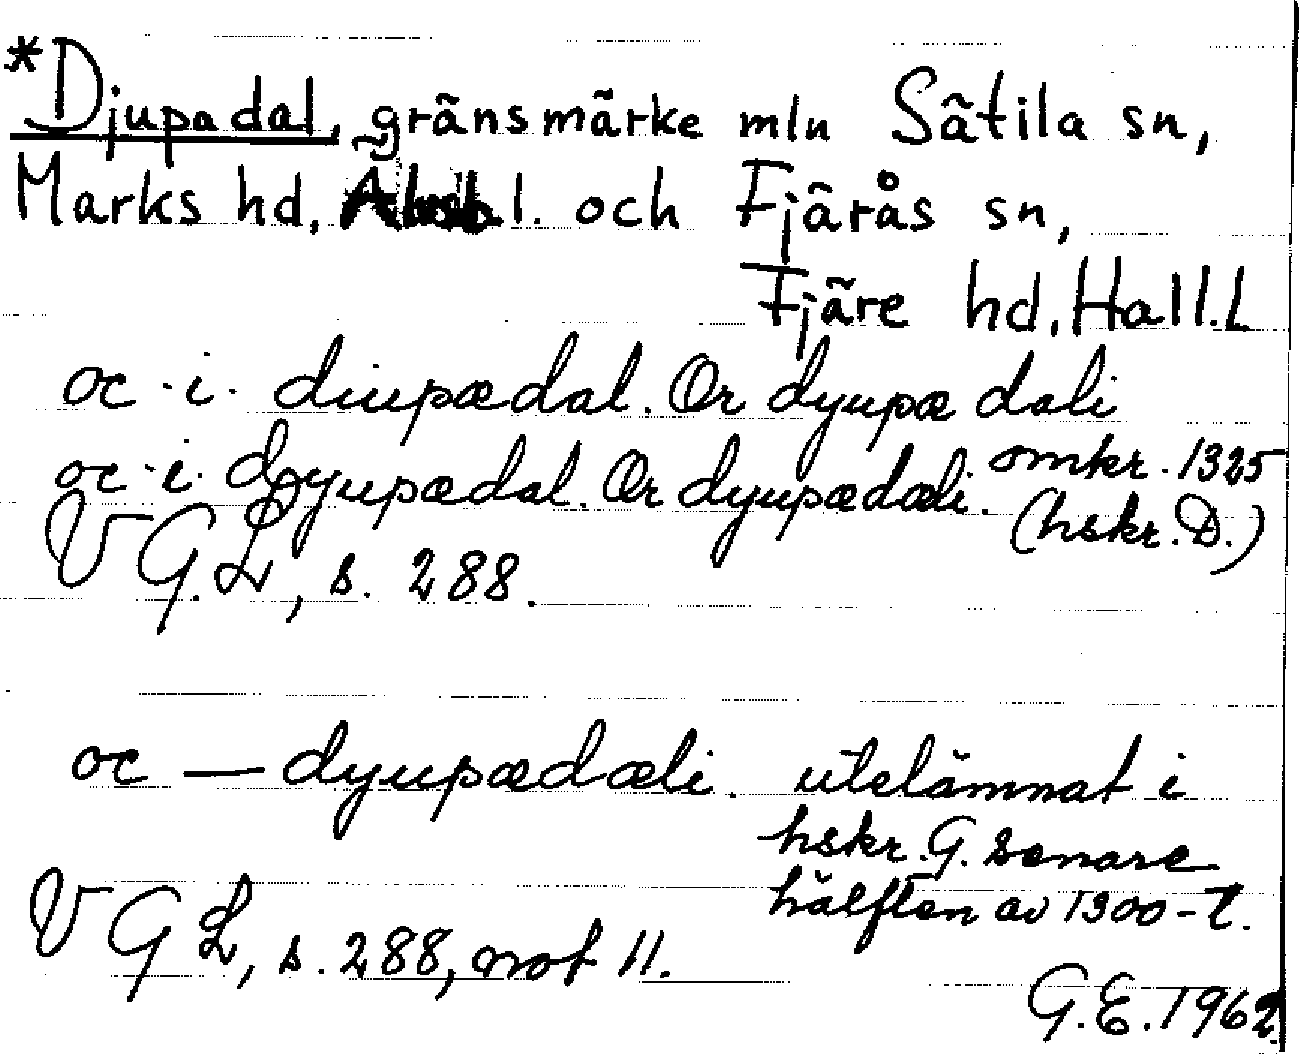 *Djupadal, gränsmärke mln Sätila sn,
Marks hd, Älvsb.l. och Fjärås sn,
Fjäre hd, Hall.l.
oc · i · diupædal. Or dyupæ dali
oc · i · dyupædal. Or dyupædæli. omkr. 1325
(hskr. D.)
VGL, s. 288.
oc — dyupædæli. utelämnat i
hskr. G. senare
hälften av 1300-t.
VGL, s. 288, not 11.
G.E. 1962